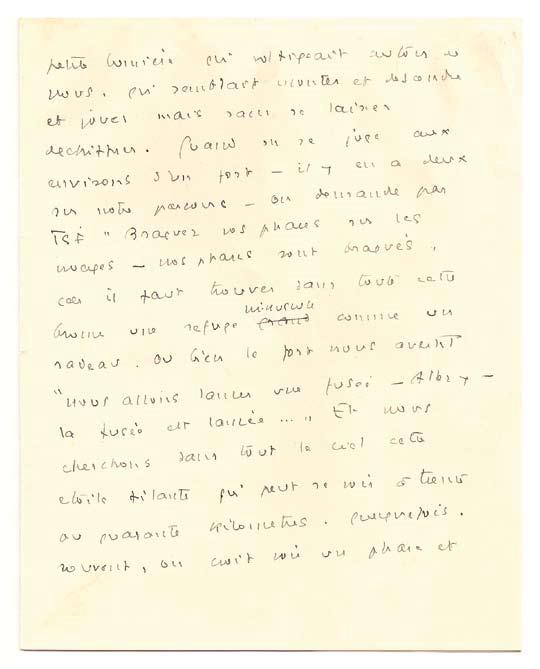 petite lumière qui voltigeait autour de
nous, qui semblait monter et descendre
et jouer mais sans se laisser
dechiffrer. Quand on se juge aux
environs d'un port – il y en a deux
sur notre parcours – on demande par
TSF "Braquez vos phares sur les
nuages – vos phares sont braqués,
car il faut trouver dans toute cette
brume une refuge minuscule comme un
radeau. Ou bien le port nous avertit
"nous allons lancer une fusée – Allez y –
la fusée est lancée..." Et nous
cherchons dans tout le ciel cette
etoile filante qui peut se voir à trente
ou quarante kilometres. Quelquefois.
souvent, on croit voir un phare et